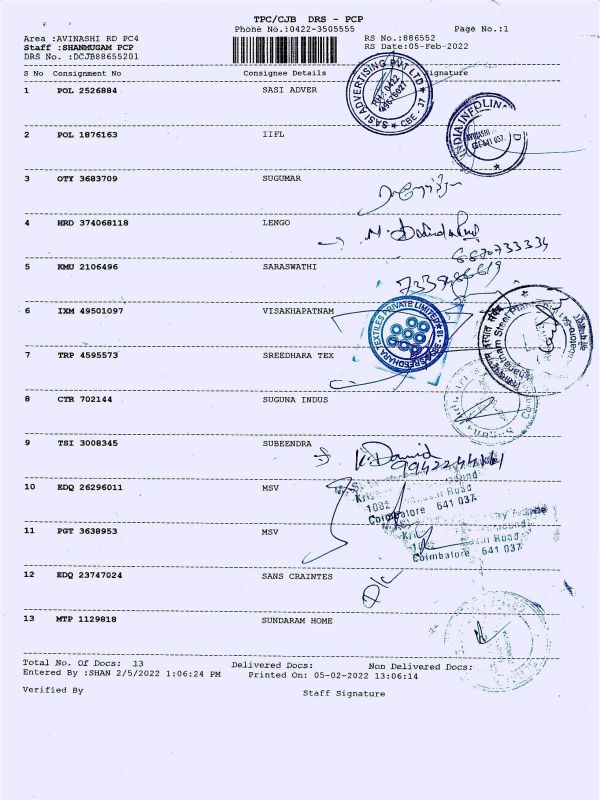 TPC/CJB DRS - PCP
Phone No.:0422-3505555
Page No.:1
Area :AVINASHI RD PC4
RS No.:886552
Staff :SHANMUGAM PCP
RS Date:05-Feb-2022
DRS No. :DCJB88655201
S No Consignment No Consignee Details Signature
1 POL 2526884 SASI ADVER
SASI ADVERTISING PVT LTD
CBE - 37
2 POL 1876163 IIFL
INDIA INFOLINE
CBE-641 037
3 OTY 3683709 SUGUMAR
4 HRD 374068118 LENGO
5 KMU 2106496 SARASWATHI
6 IXM 49501097 VISAKHAPATNAM
SREEDHARA TEXTILES PRIVATE LIMITED
7 TRP 4595573 SREEDHARA TEX
8 CTR 702144 SUGUNA INDUS
9 TSI 3008345 SUBEENDRA
K. David
10 EDQ 26296011 MSV
Road
Coimbatore 641 037
11 PGT 3638953 MSV
Road
Coimbatore 641 037
12 EDQ 23747024 SANS CRAINTES
13 MTP 1129818 SUNDARAM HOME
Total No. Of Docs: 13 Delivered Docs: Non Delivered Docs:
Entered By :SHAN 2/5/2022 1:06:24 PM Printed On: 05-02-2022 13:06:14
Verified By Staff Signature